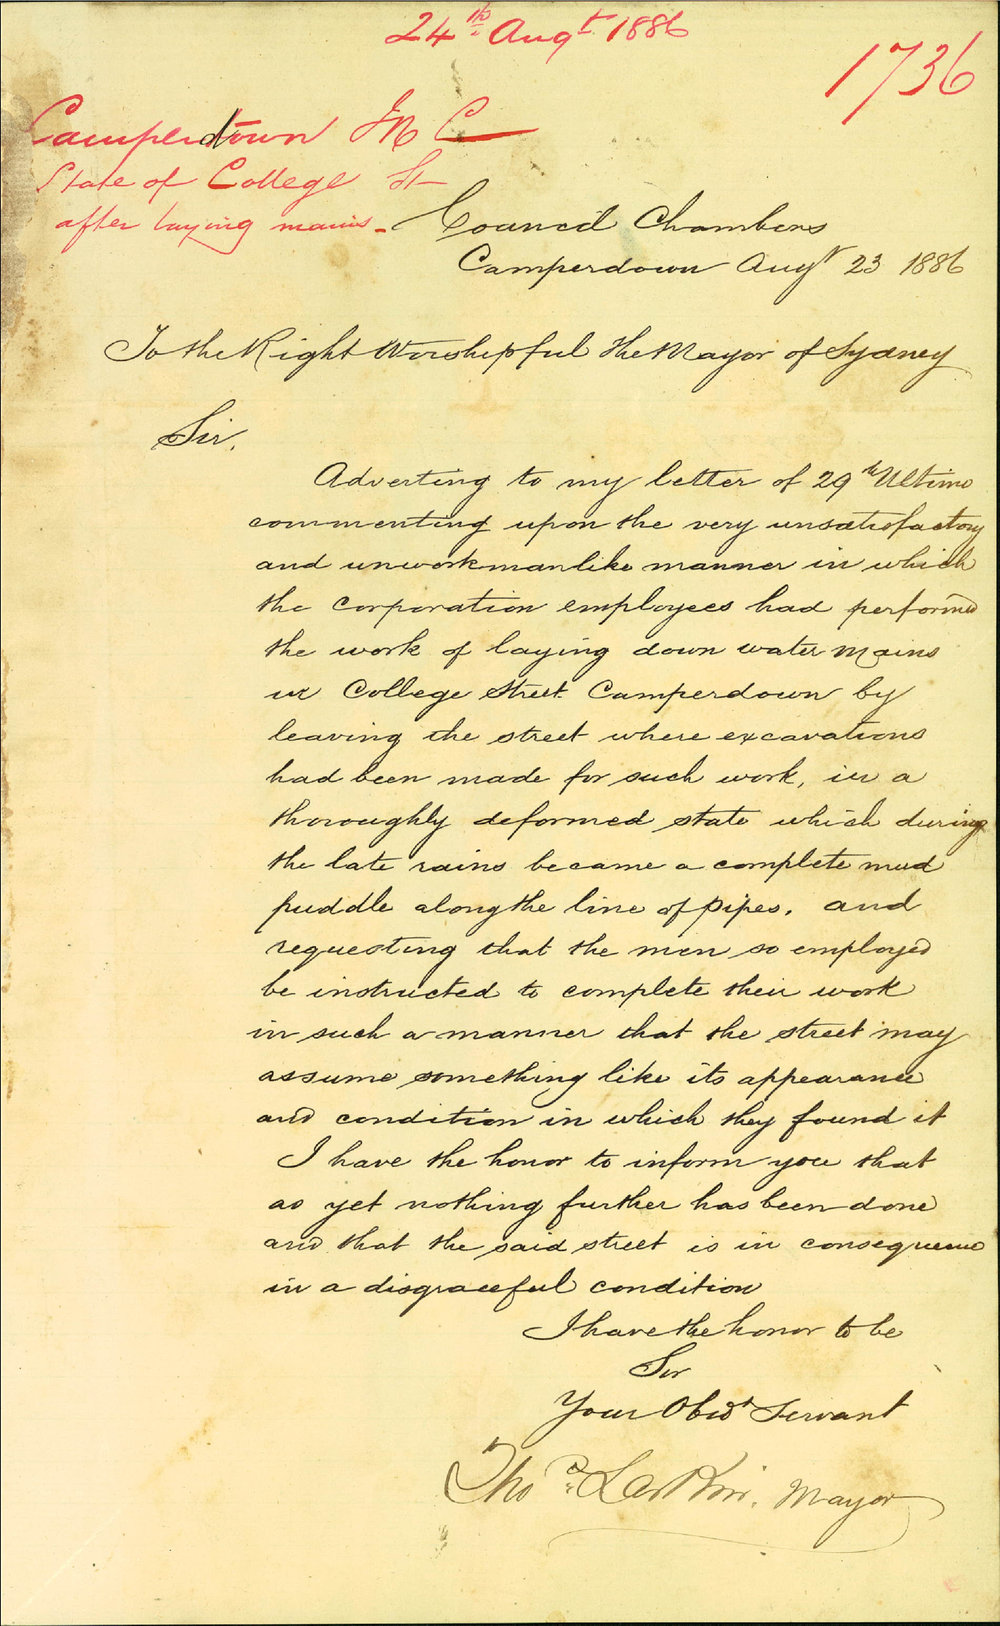 24th Augt. 1886
1736
Camperdown M C
State of College St
after laying mains -
Council Chambers
Camperdown Augt 23 1886
To the Right Worshipful the Mayor of Sydney
Sir,
Adverting to my letter of 29th Ultimo
commenting upon the very unsatisfactory
and unworkmanlike manner in which
the Corporation employees had performed
the work of laying down water mains
in College Street Camperdown by
leaving the street where excavations
had been made for such work, in a
thoroughly deformed state which during
the late rains became a complete mud
puddle along the line of pipes. and
requesting that the men so employed
be instructed to complete their work
in such a manner that the street may
assume something like its appearance
and condition in which they found it
I have the honor to inform you that
as yet nothing further has been done
and that the said street is in consequence
in a disgraceful condition
I have the honor to be
Sir
Your Obedt Servant
Thos. Larkin, Mayor